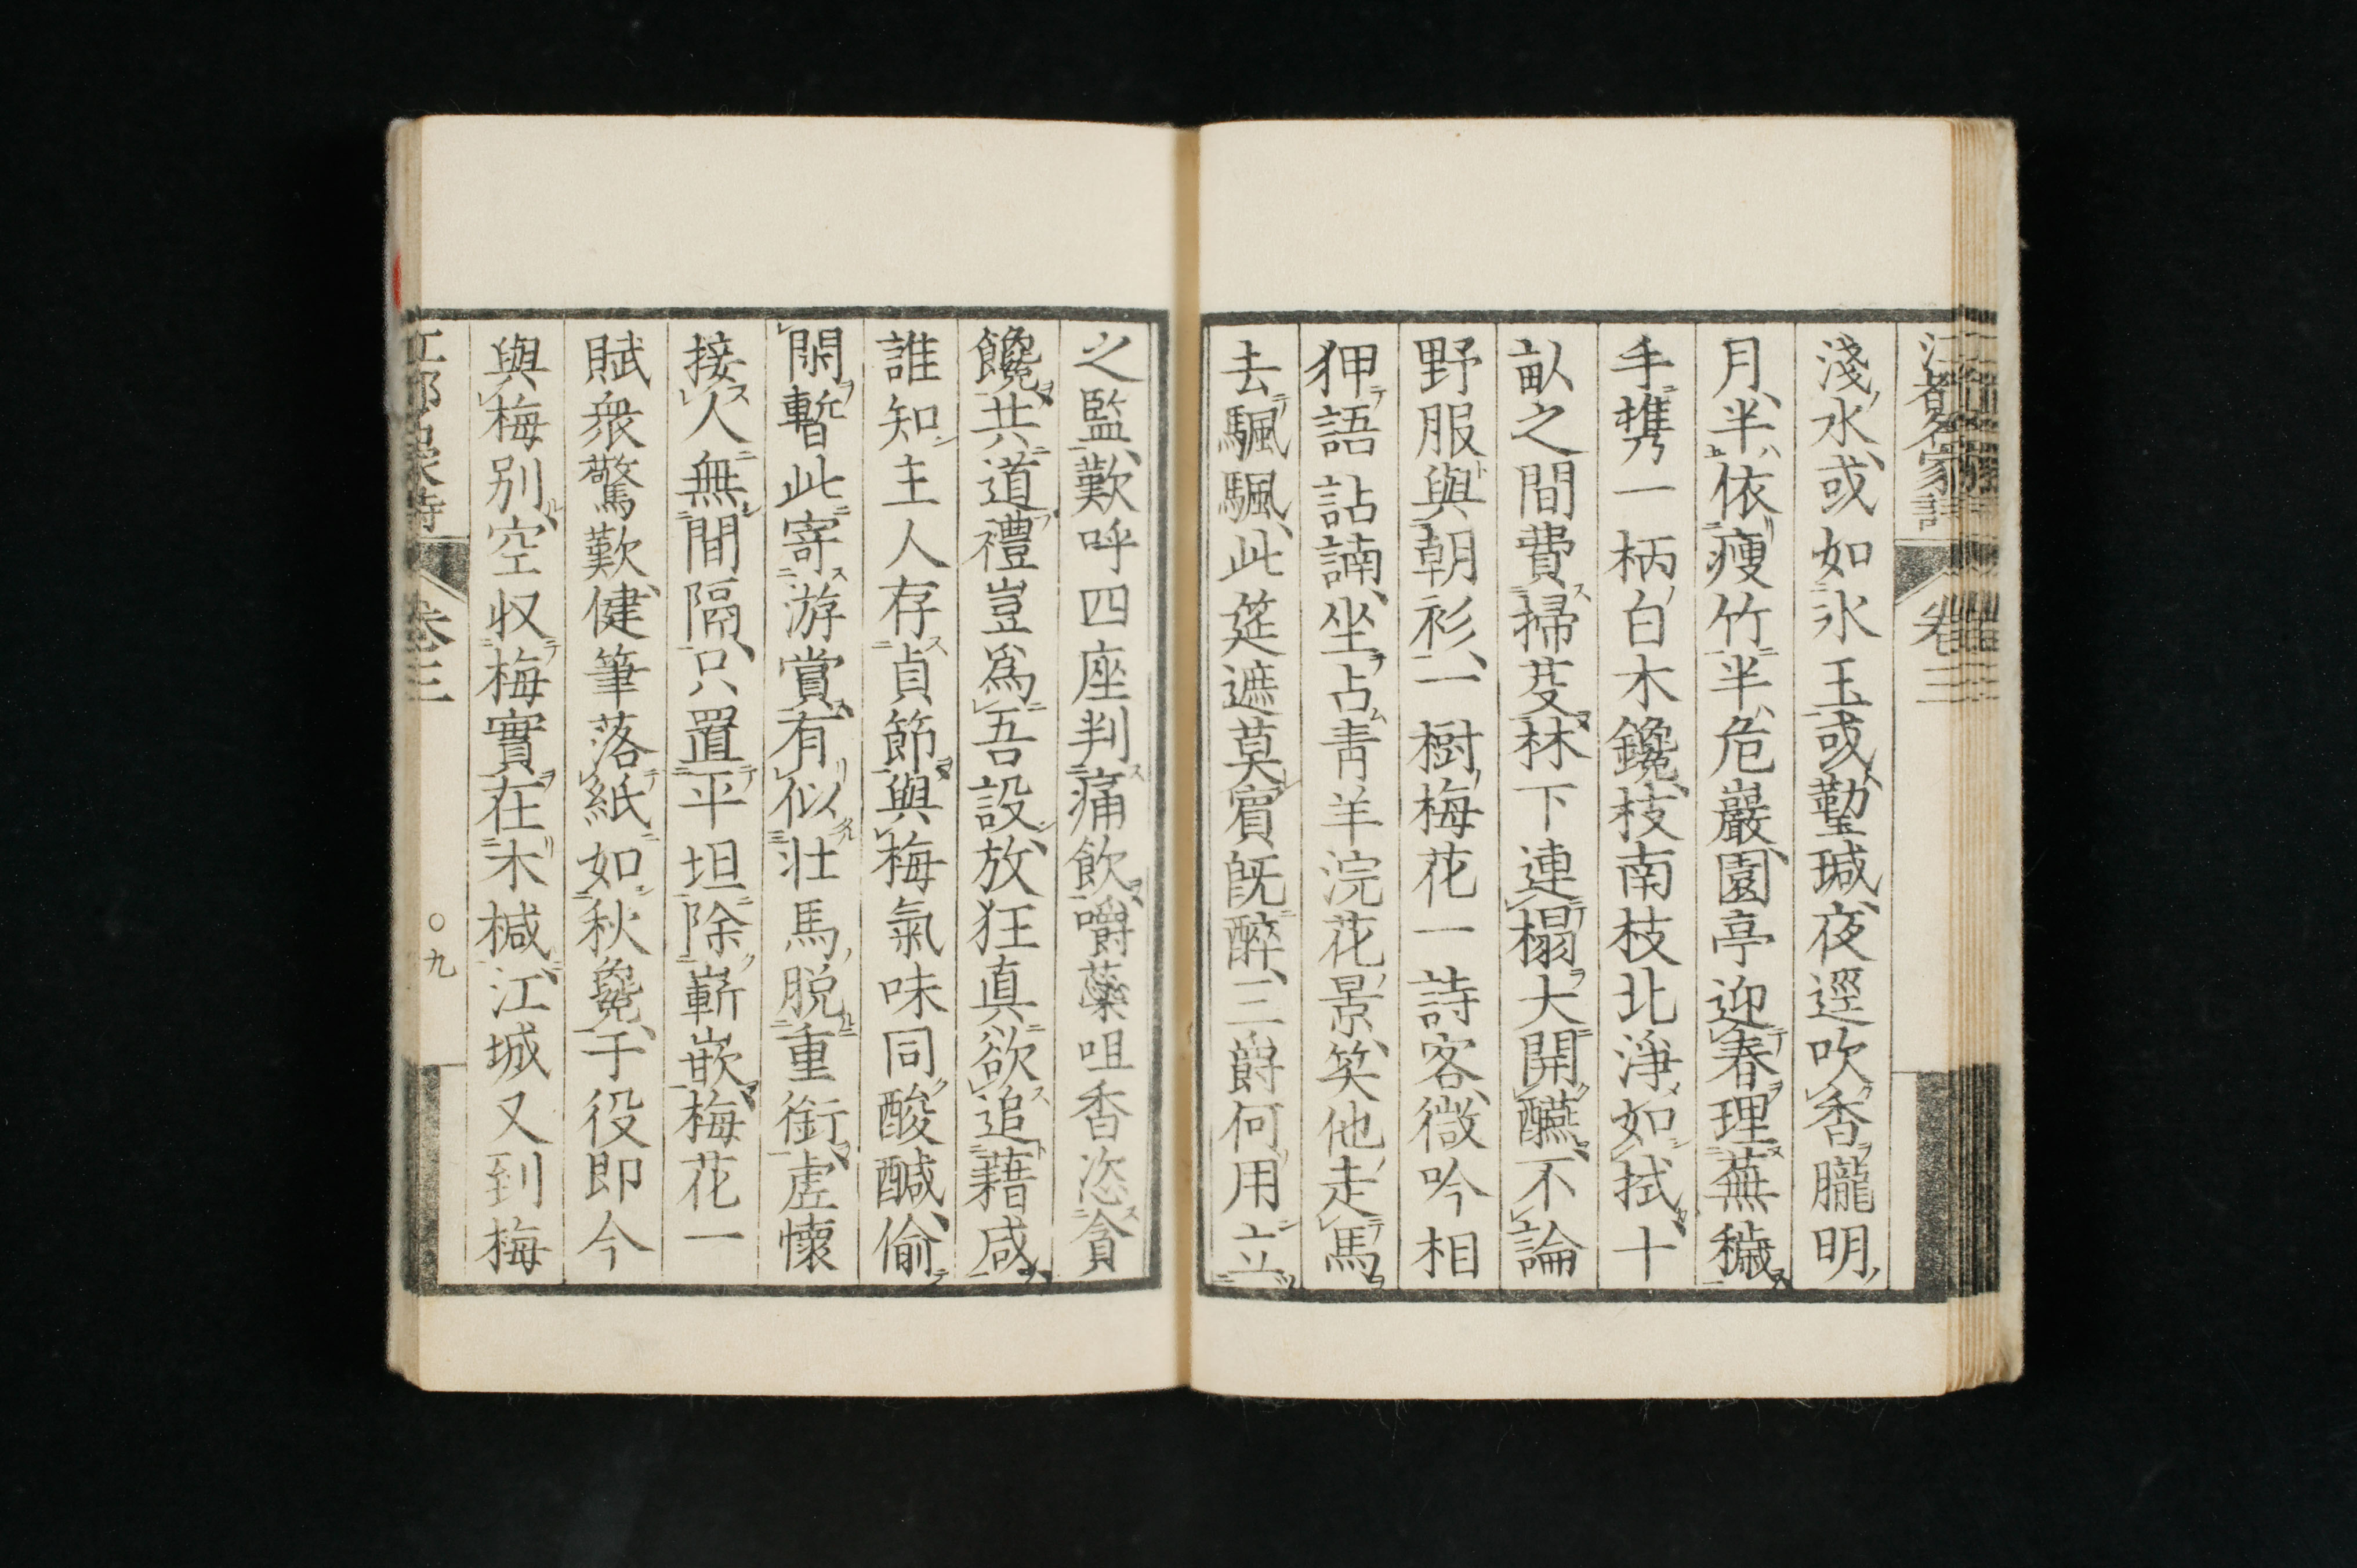 淺水或如氷玉或勤瑊夜逕吹香朧明
月半依瘦竹半危巖園亭迎春理蕪穢
手携一柄白木鑱枝南枝北淨如拭十
畝之間費掃芟林下連榻大開醼不論
野服與朝衫一樹梅花一詩客微吟相
狎語詀諵坐占靑羊浣花景笑他走馬
去颿颿此筵遮莫賓既醉三爵何用立
之監歎呼四座判痛飲嚼蘂咀香恣貪
饞共道禮豈爲吾設放狂真欲追藉咸
誰知主人存貞節與梅氣味同酸醎偷
閑暫此寄游賞有似壯馬脱重銜虛懷
接人無間隔只置平坦除嶄嵌梅花一
賦衆驚歎健筆落紙如秋毚于役即今
與梅別空收梅實在木椷江城又到梅
卷三
〇九